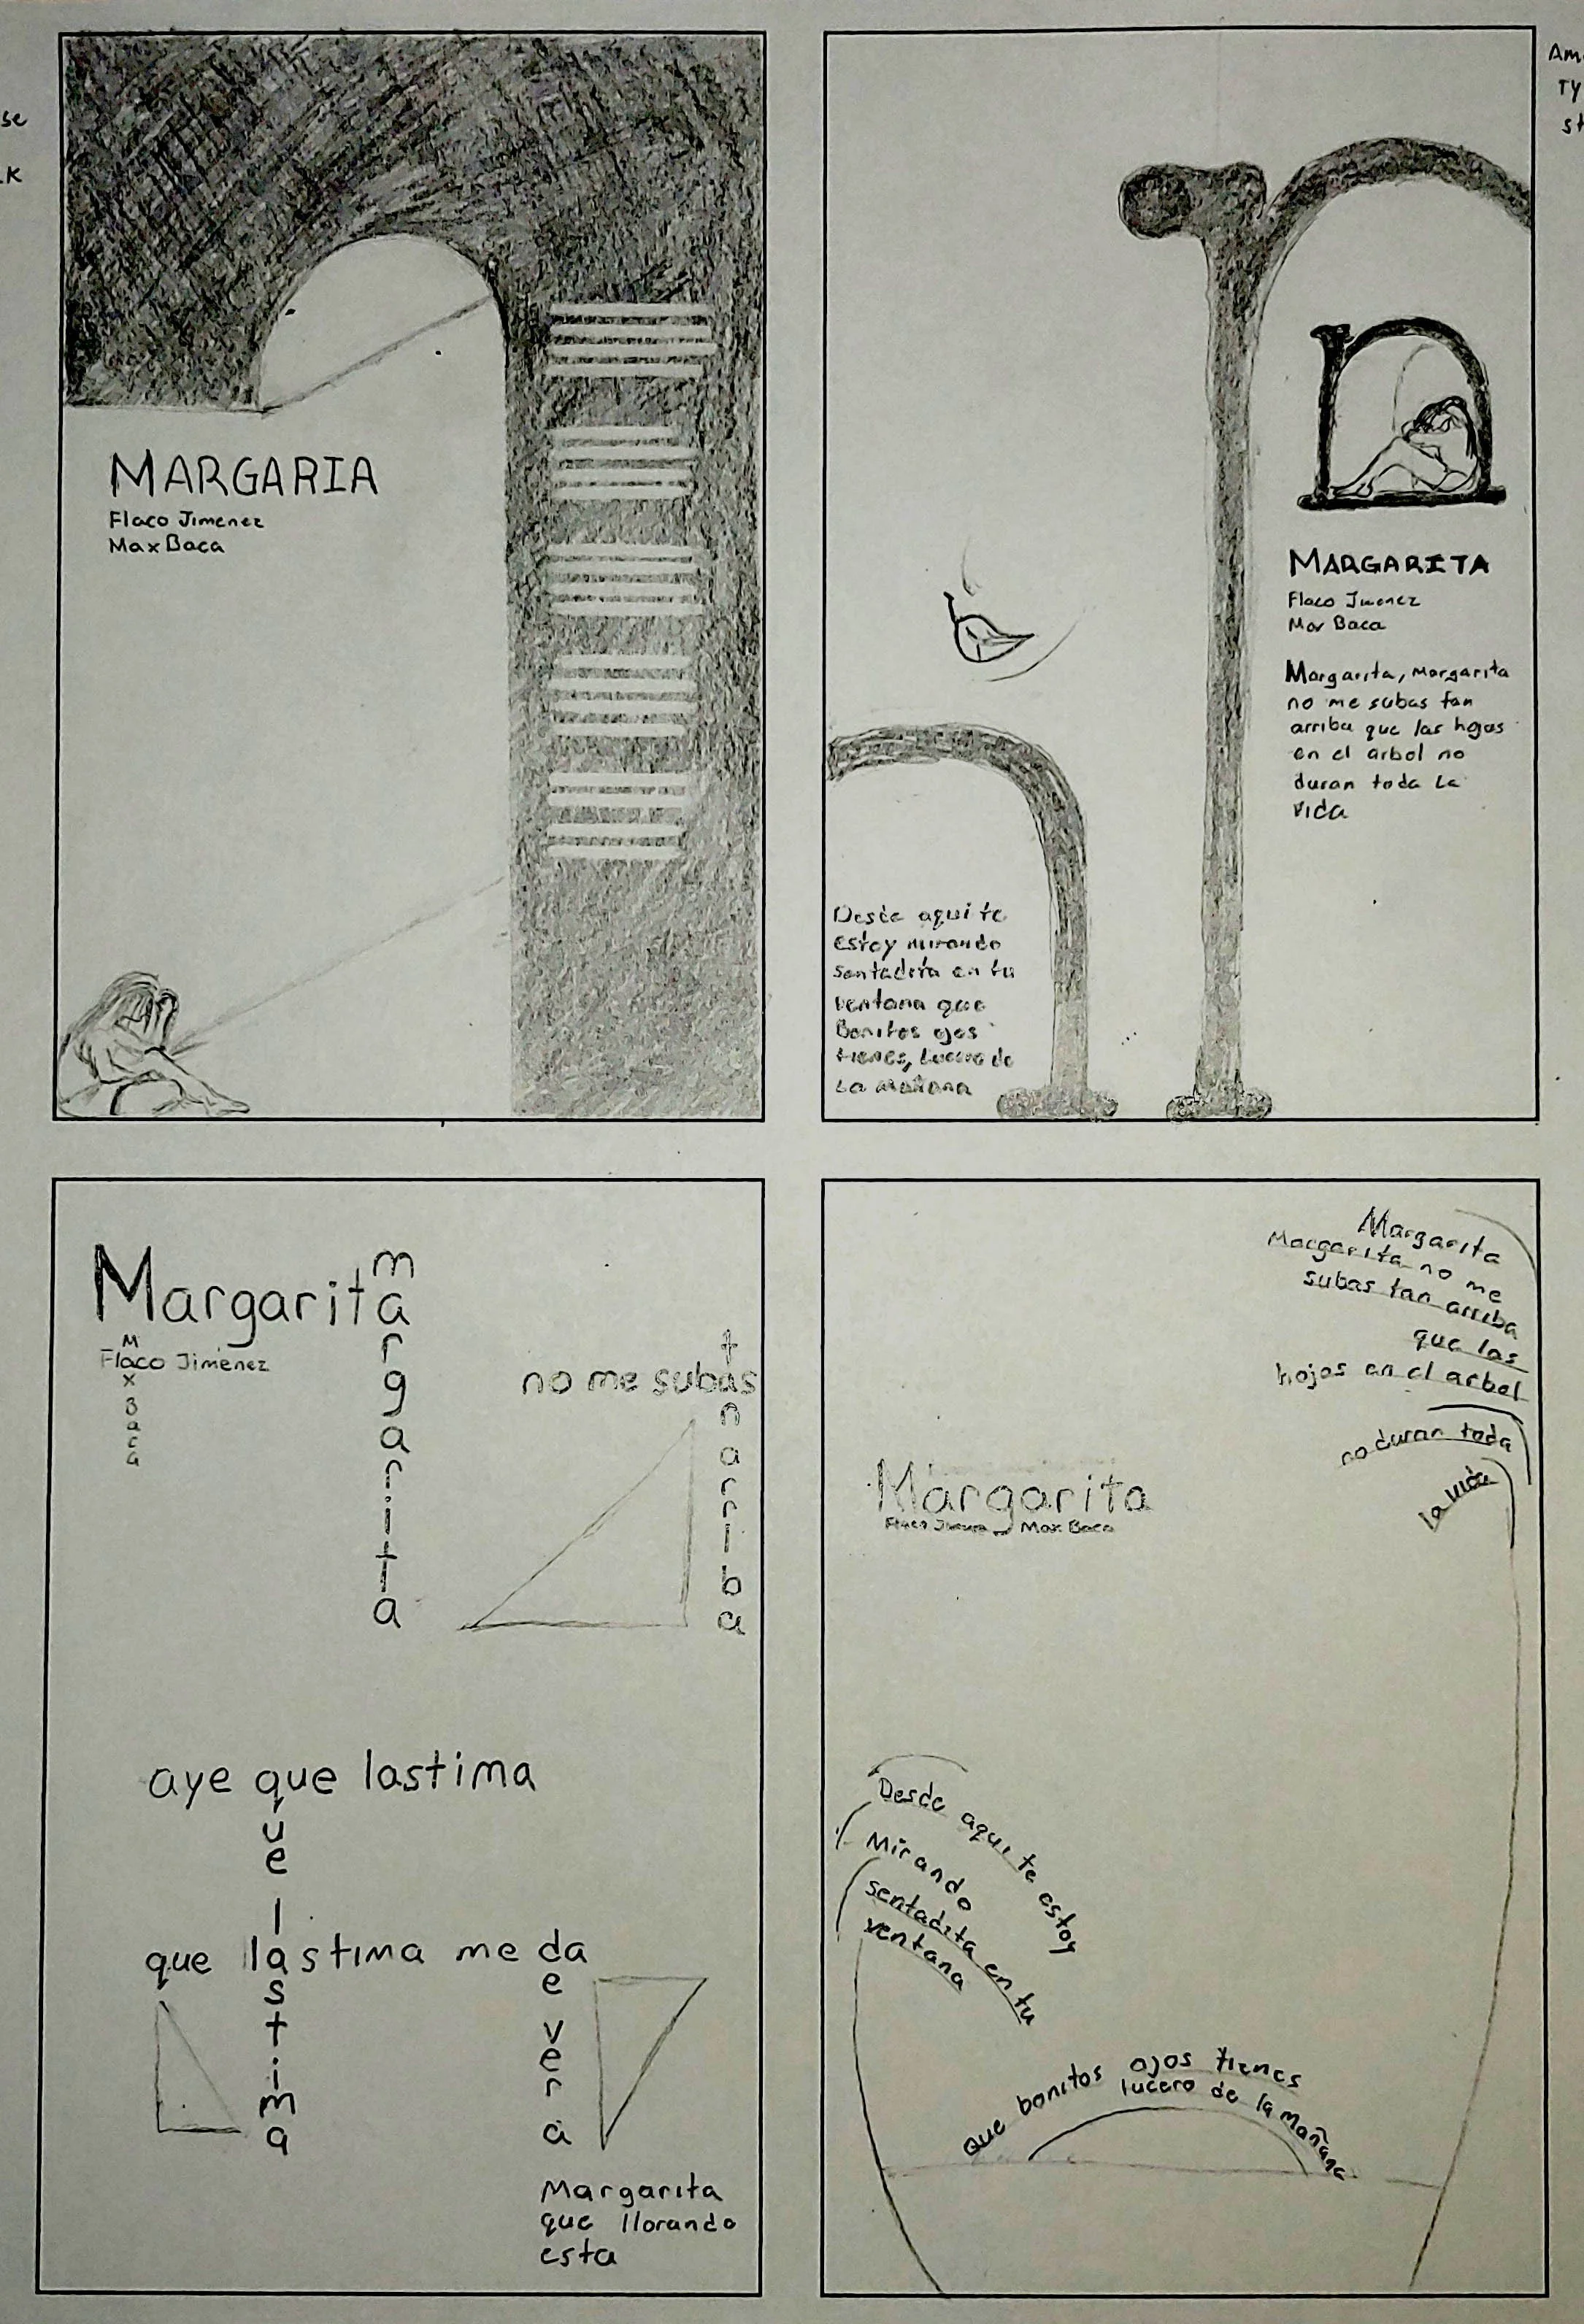 se
K
MARGARIA
Flaco Jimenez
Max Baca
Am
TY
st
MARGARITA
Flaco Jimenez
Max Baca
Margarita, Margarita
no me subas tan
arriba que las hojas
en el arbol no
duran toda la
vida
Desde aqui te
estoy mirando
sentadita en tu
ventana que
Bonitos ojos
tienes, Lucero de
La mañana
Margarita
margarita
Flaco Jimenez
Max Baca
no me subas
tan arriba
aye que lastima
que lastima
que lastima me da
de vera
Margarita
que llorando
esta
Margarita
Margarita no me
subas tan arriba
que las
hojas en el arbol
no duran toda
la vida
Margarita
Max Baca
Desde aqui te estoy
Mirando
sentadita en tu
ventana
que bonitos ojos tienes
lucero de la mañana